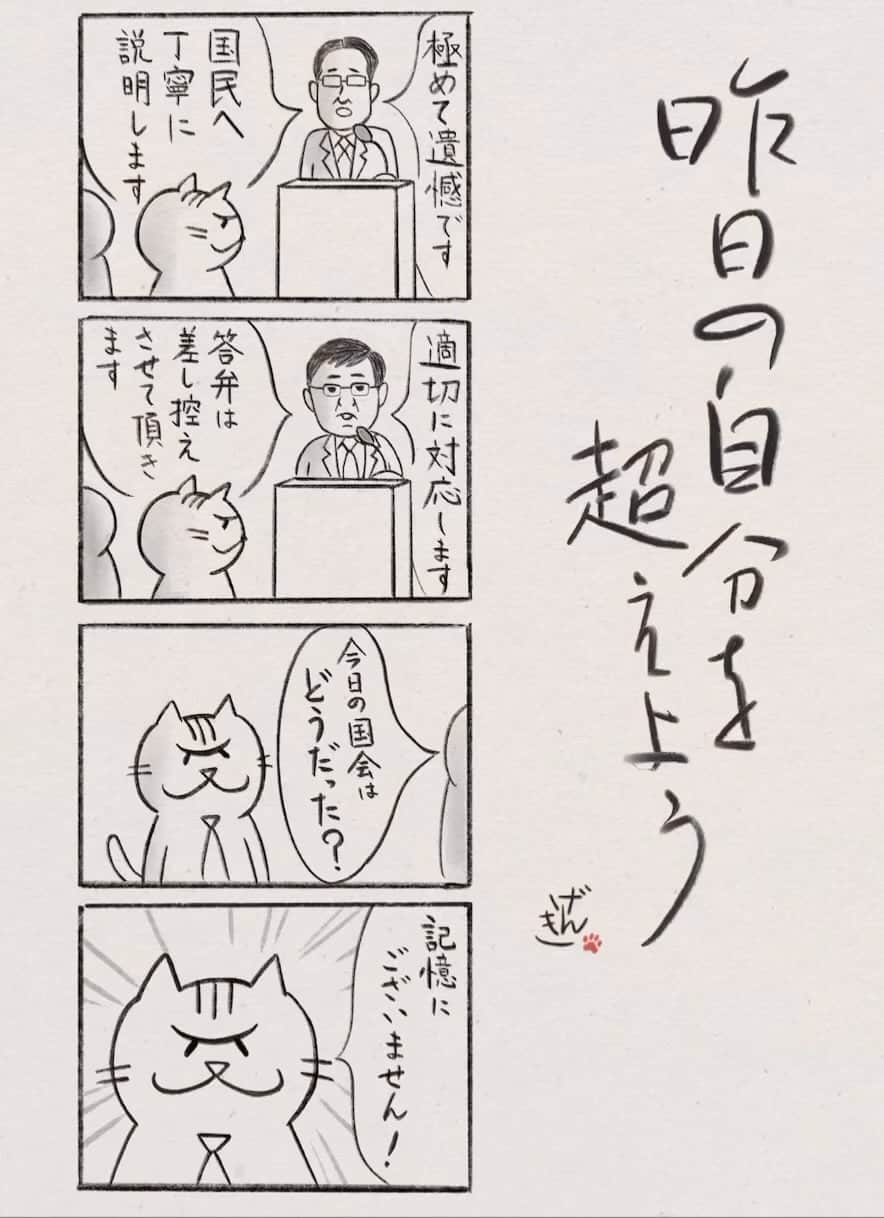 昨日の自分を
超えよう
げん
き
極めて遺憾です
国民へ
丁寧に
説明します
適切に対応します
答弁は
差し控え
させて頂き
ます
今日の国会は
どうだった?
記憶に
ございません!